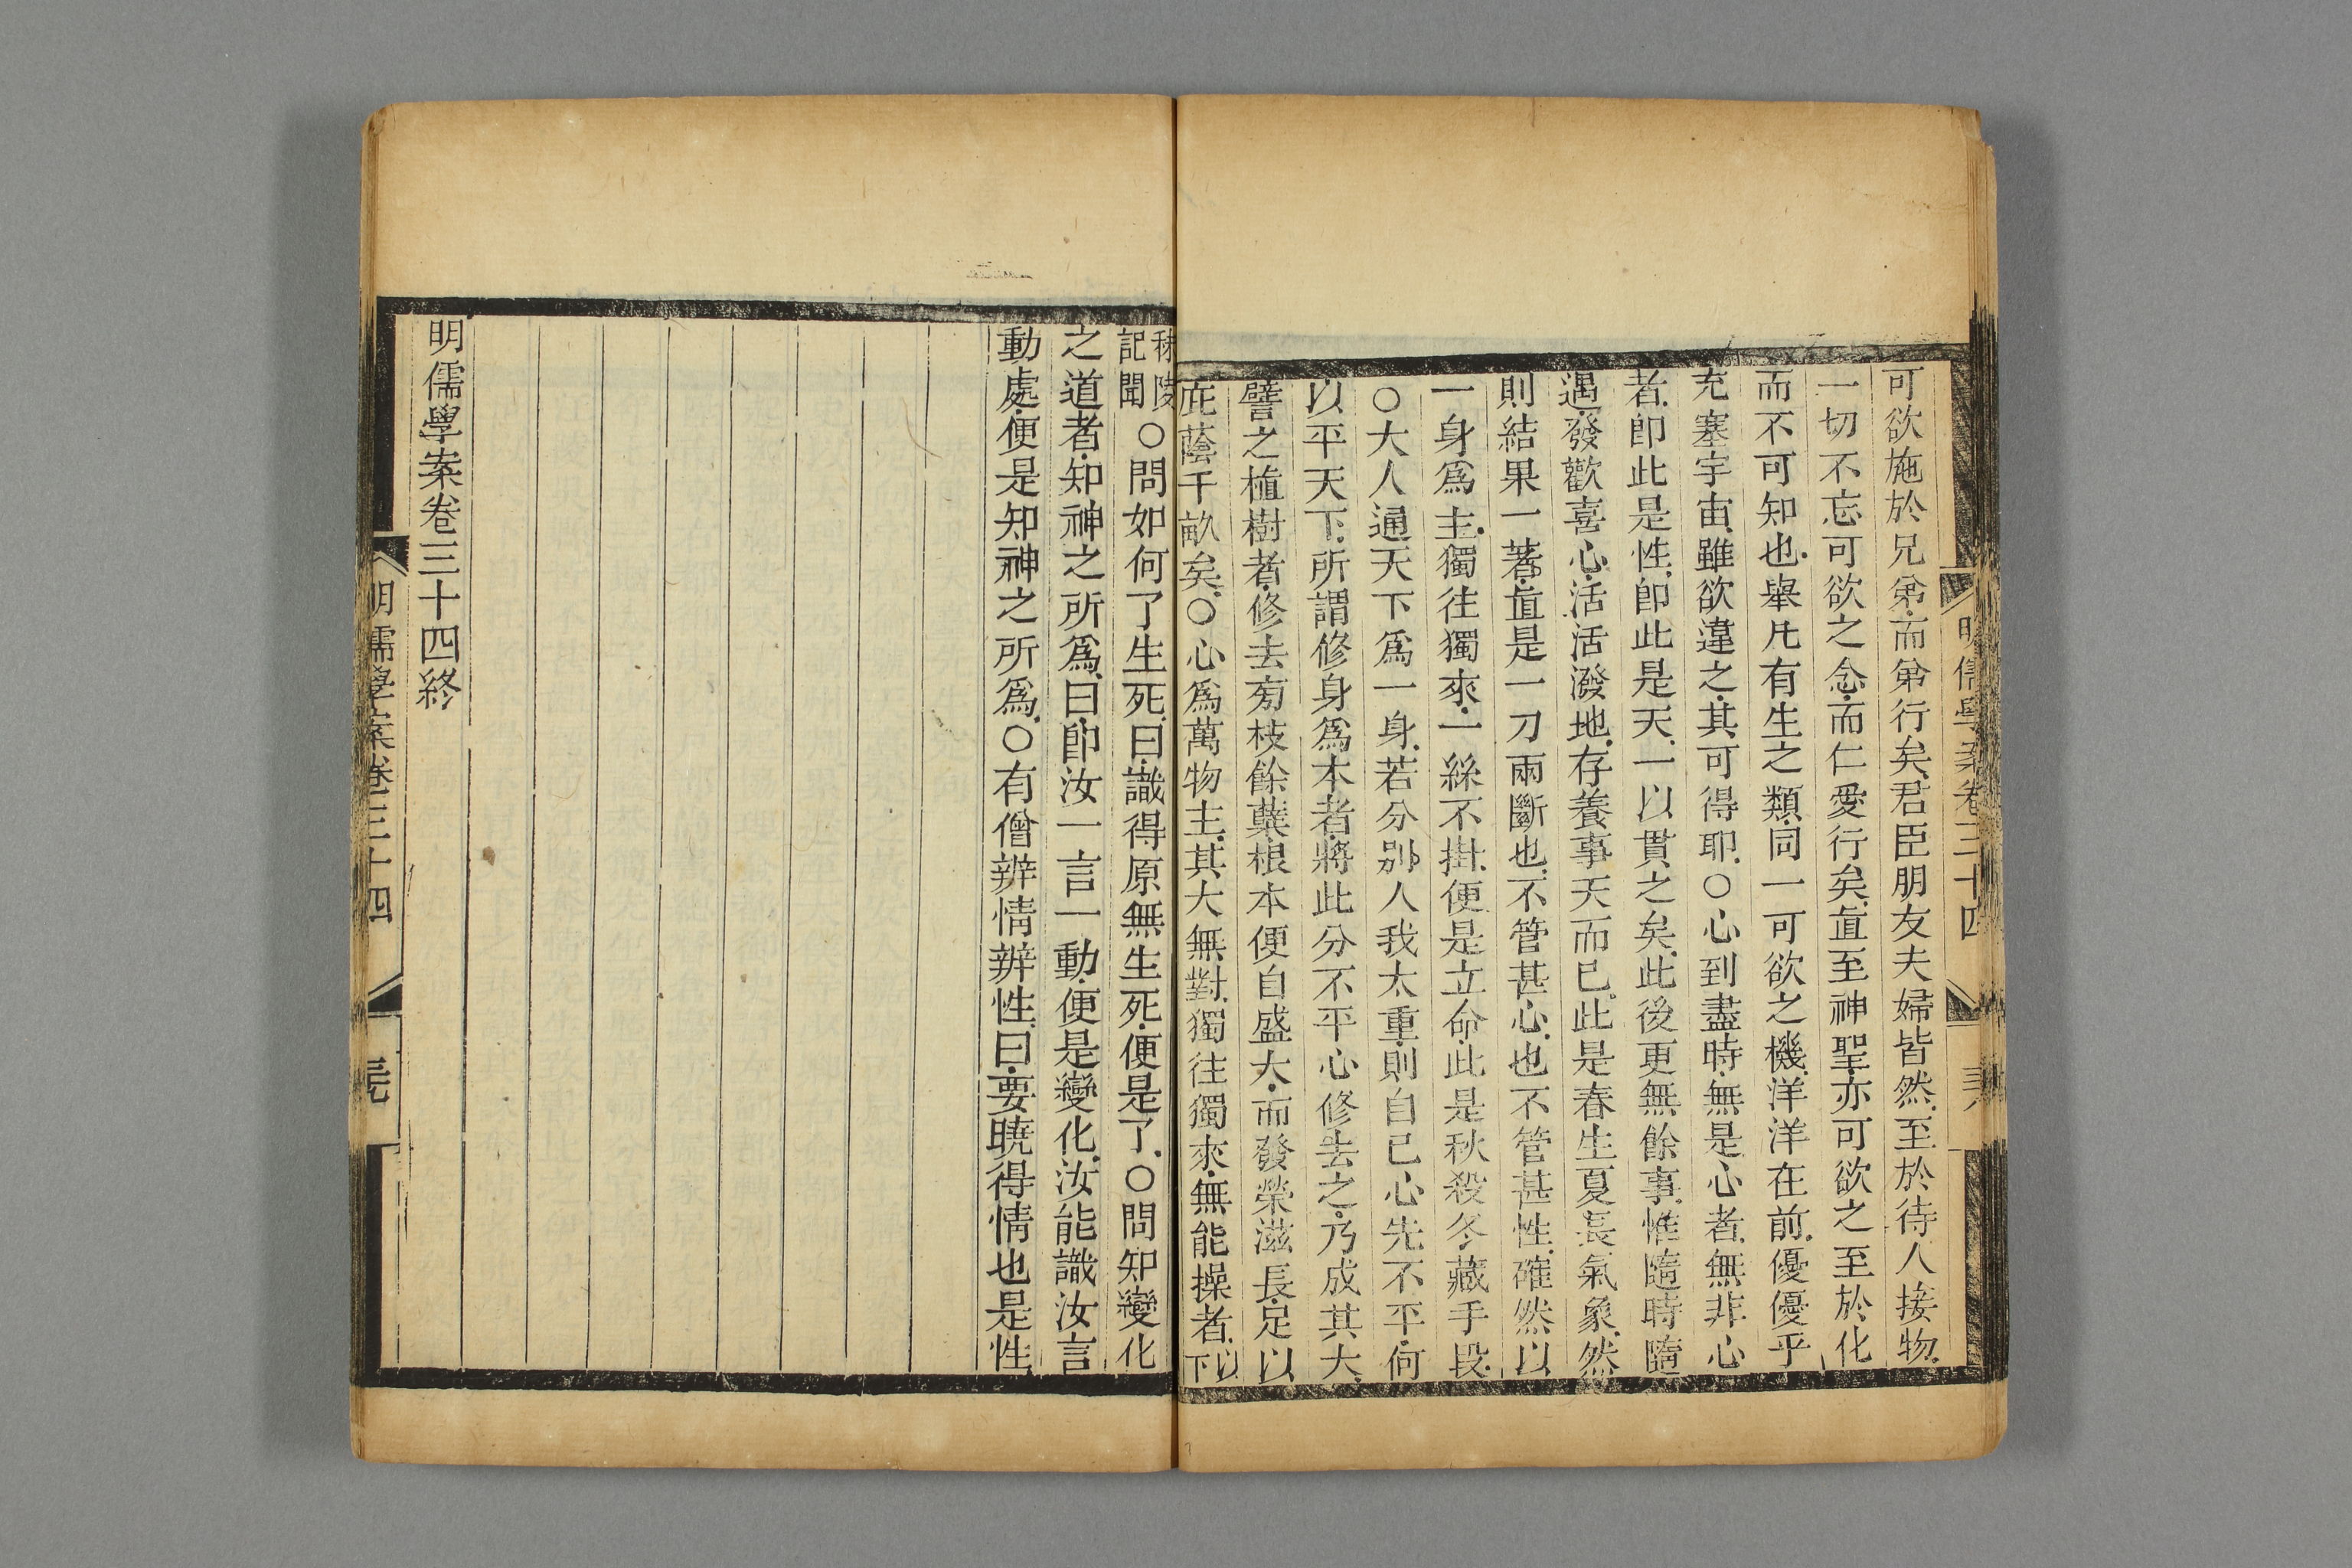 可欲施於兄弟而弟行矣君臣朋友夫婦皆然至於待人接物
一切不忘可欲之念而仁愛行矣直至神聖亦可欲之至於化
而不可知也舉凡有生之類同一可欲之機洋洋在前優優乎
充塞宇宙雖欲違之其可得耶○心到盡時無是心者無非心
者即此是性即此是天一以貫之矣此後更無餘事惟隨時隨
遇發歡喜心活活潑地存養事天而已此是春生夏長氣象然
則結果一著直是一刀兩斷也不管甚心也不管甚性確然以
一身爲主獨往獨來一絲不掛便是立命此是秋殺冬藏手段
○大人通天下爲一身若分別人我太重則自己心先不平何
以平天下所謂修身爲本者將此分不平心修去之乃成其大
譬之植樹者修去旁枝餘蘖根本便自盛大而發榮滋長足以
庇蔭千畝矣○心爲萬物主其大無對獨往獨來無能操者以下
秣陵記聞○問如何了生死曰識得原無生死便是了○問知變化
之道者知神之所爲曰即汝一言一動便是變化汝能識汝言
動處便是知神之所爲○有僧辨情辨性曰要曉得情也是性
明儒學案卷三十四終
明儒學案卷三十四